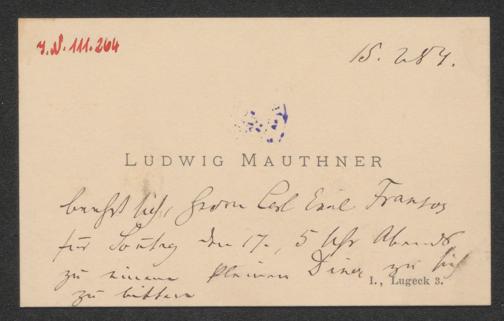 I.N. 111.264
15. 2 84.
LUDWIG MAUTHNER
beehrt sich, Herrn Carl Emil Franzos
für Sontag den 17., 5 Uhr Abends
zu einem kleinen Diner zu sich
zu bitten
I., Lugeck 3.